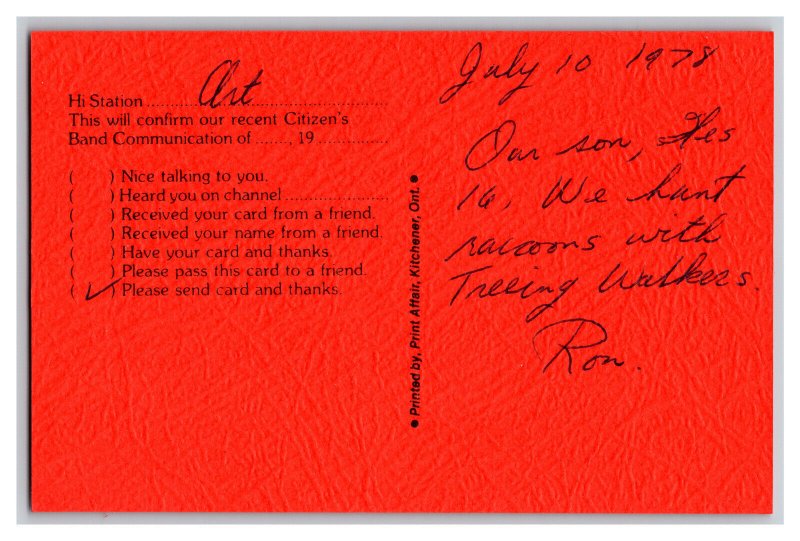 Hi Station Art
This will confirm our recent Citizen's
Band Communication of ......., 19 ...............
( ) Nice talking to you.
( ) Heard you on channel ......................
( ) Received your card from a friend.
( ) Received your name from a friend.
( ) Have your card and thanks.
( ) Please pass this card to a friend.
(✓) Please send card and thanks.
● Printed by, Print Affair, Kitchener, Ont. ●
July 10 1978
Our son, Hes
16, We hunt
racoons with
Treeing Walkers.
Ron.